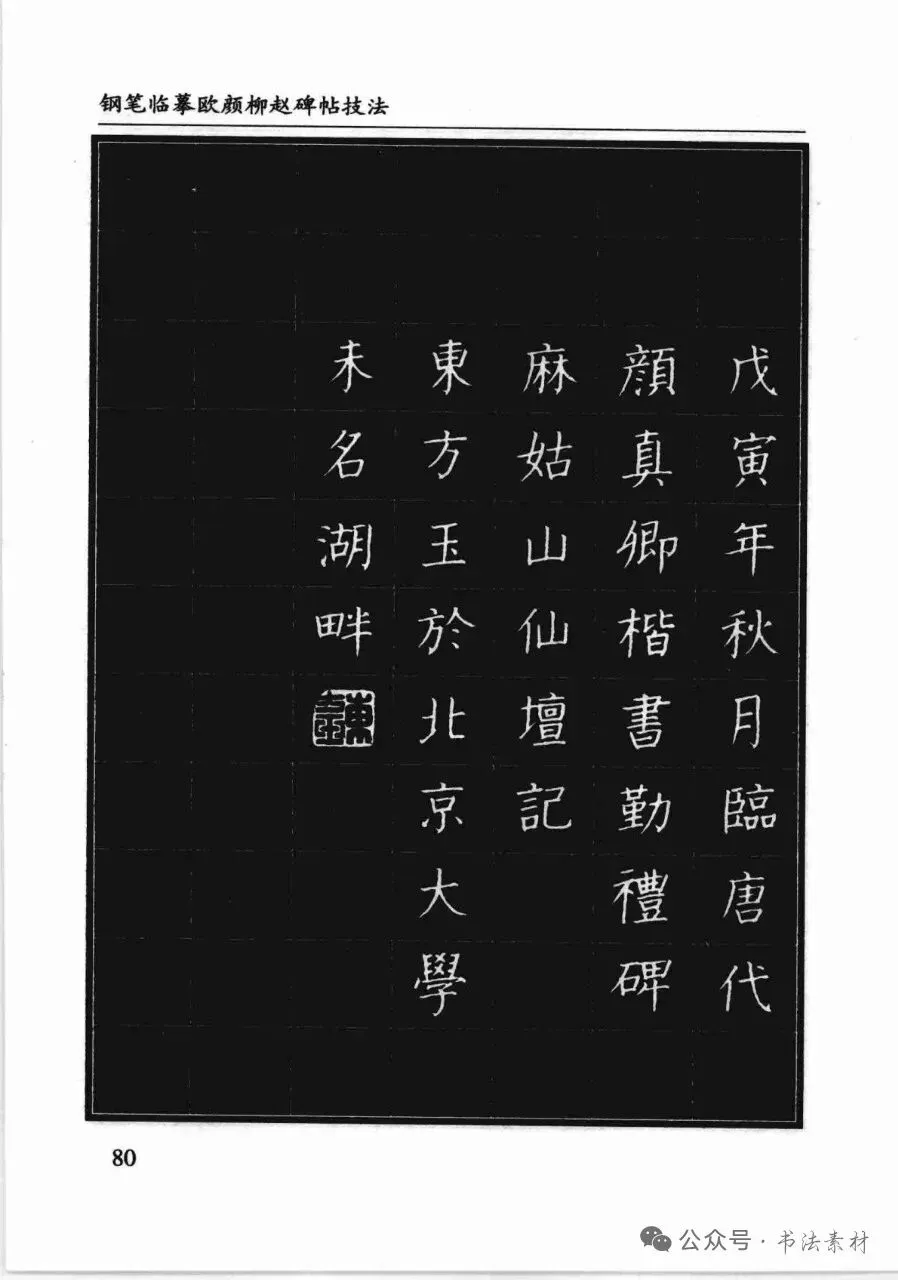 钢笔临摹欧颜柳赵碑帖技法
戊寅年秋月臨唐代
顔真卿楷書勤禮碑
麻姑山仙壇記
東方玉於北京大學
未名湖畔
80
公众号·书法素材